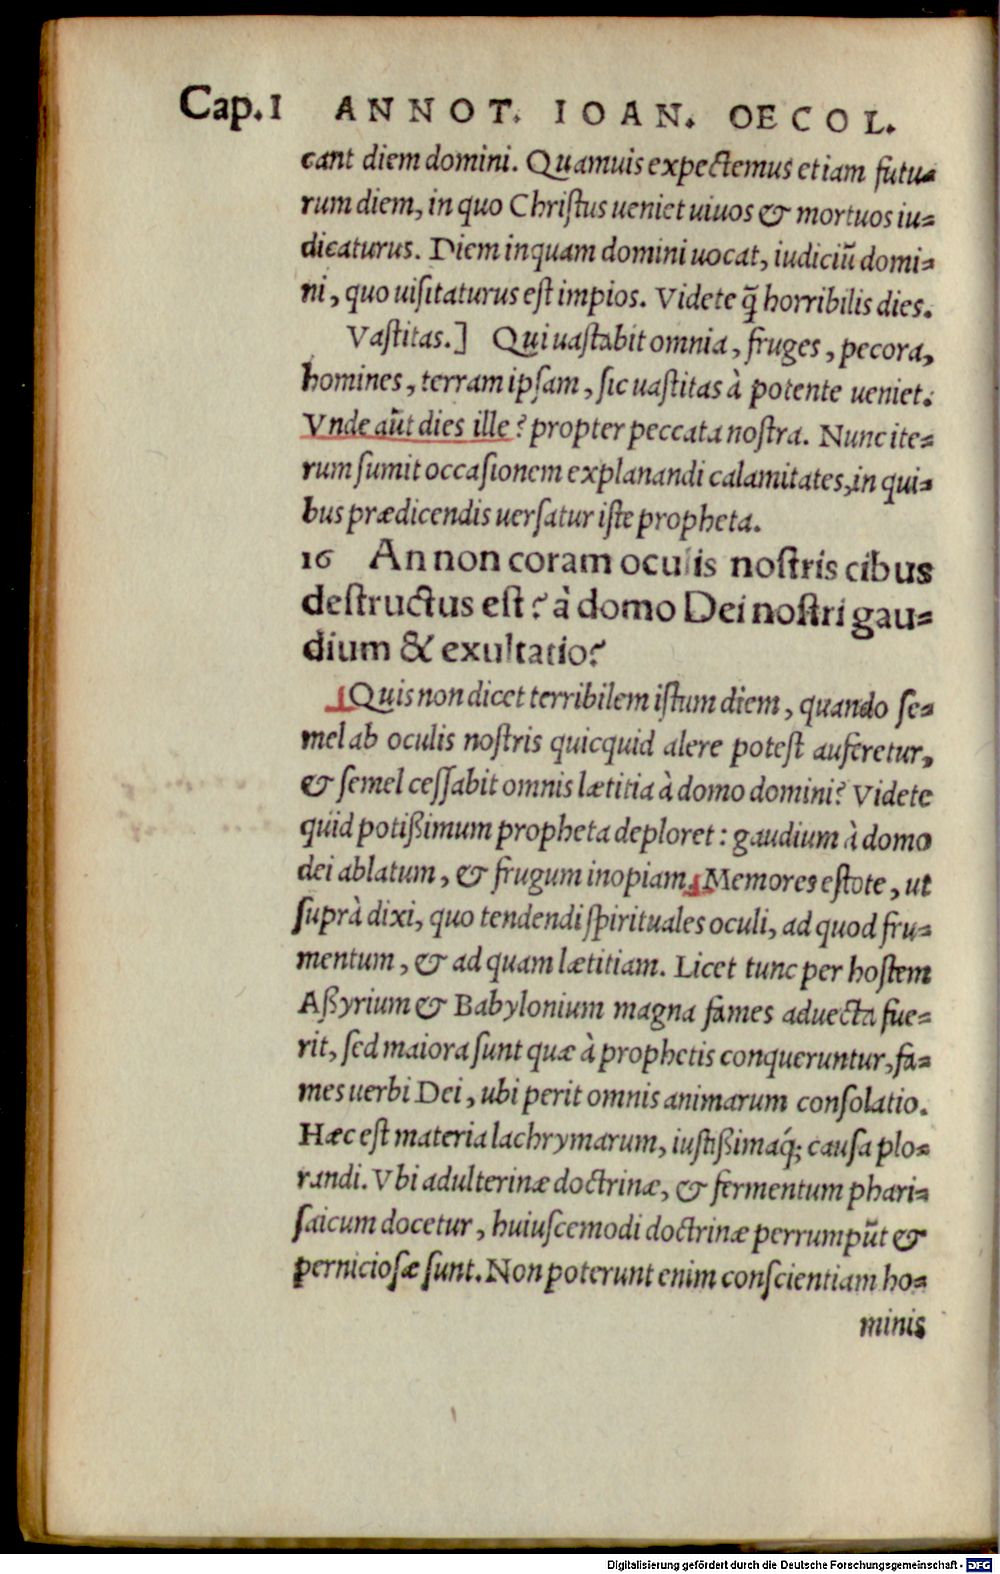 Cap.1 ANNOT. IOAN. OECOL.
cant diem domini. Quamuis expectemus etiam futu=
rum diem, in quo Chriſtus ueniet uiuos & mortuos iu=
dicaturus. Diem inquam domini uocat, iudiciũ domi=
ni, quo uiſitaturus eſt impios. Videte q̃ horribilis dies.
Vaſtitas.] Qui uaſtabit omnia, fruges, pecora,
homines, terram ipſam, ſic uaſtitas à potente ueniet.
Vnde aũt dies ille? propter peccata noſtra. Nunc ite=
rum ſumit occaſionem explanandi calamitates, in qui=
bus prædicendis uerſatur iſte propheta.
16 An non coram oculis noſtris cibus
deſtructus eſt? à domo Dei noſtri gau=
dium & exultatio?
Quis non dicet terribilem iſtum diem, quando ſe=
mel ab oculis noſtris quicquid alere poteſt auferetur,
& ſemel ceſſabit omnis lætitia à domo domini? Videte
quid potißimum propheta deploret: gaudium à domo
dei ablatum, & frugum inopiam. Memores eſtote, ut
ſuprà dixi, quo tendendi ſpirituales oculi, ad quod fru=
mentum, & ad quam lætitiam. Licet tunc per hoſtem
Aßyrium & Babylonium magna fames aduecta fue=
rit, ſed maiora ſunt quæ à prophetis conqueruntur, fa=
mes uerbi Dei, ubi perit omnis animarum conſolatio.
Hæc eſt materia lachrymarum, iuſtißimaq́; cauſa plo=
randi. Vbi adulterinæ doctrinæ, & fermentum phari=
ſaicum docetur, huiuſcemodi doctrinæ perrumpũt &
pernicioſæ ſunt. Non poterunt enim conſcientiam ho=
minis
Digitalisierung gefördert durch die Deutsche Forschungsgemeinschaft - DFG